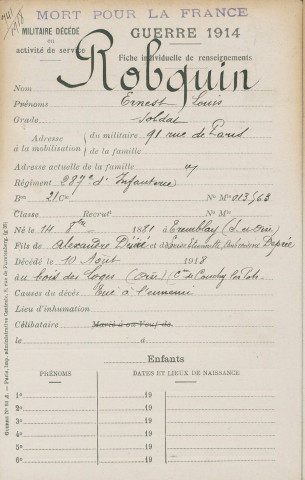 MORT POUR LA FRANCE
MILITAIRE DÉCÉDÉ
en
activité de service
GUERRE 1914
Fiche individuelle de renseignements
Nom Robquin
Prénoms Ernest Louis
Grade Soldat
Adresse à la mobilisation { du militaire 91 rue de Paris
de la famille
Adresse actuelle de la famille
Régiment 287e d'Infanterie
Bon 21 Cie Nº Mle 013463
Classe Recrut Nº Mle
Né le 14 8bre 1881 à Tremblay (S. et Oise)
Fils de Alexandre Désiré et de Louise
Décédé le 10 Août 1918
au bois des Loges (Oise)
Causes du décès Tué à l'ennemi
Lieu d'inhumation
Célibataire Marié à ou Veuf de
le à
Enfants
PRÉNOMS DATES ET LIEUX DE NAISSANCE
1º 19
2º 19
3º 19
4º 19
5º 19
6º 19